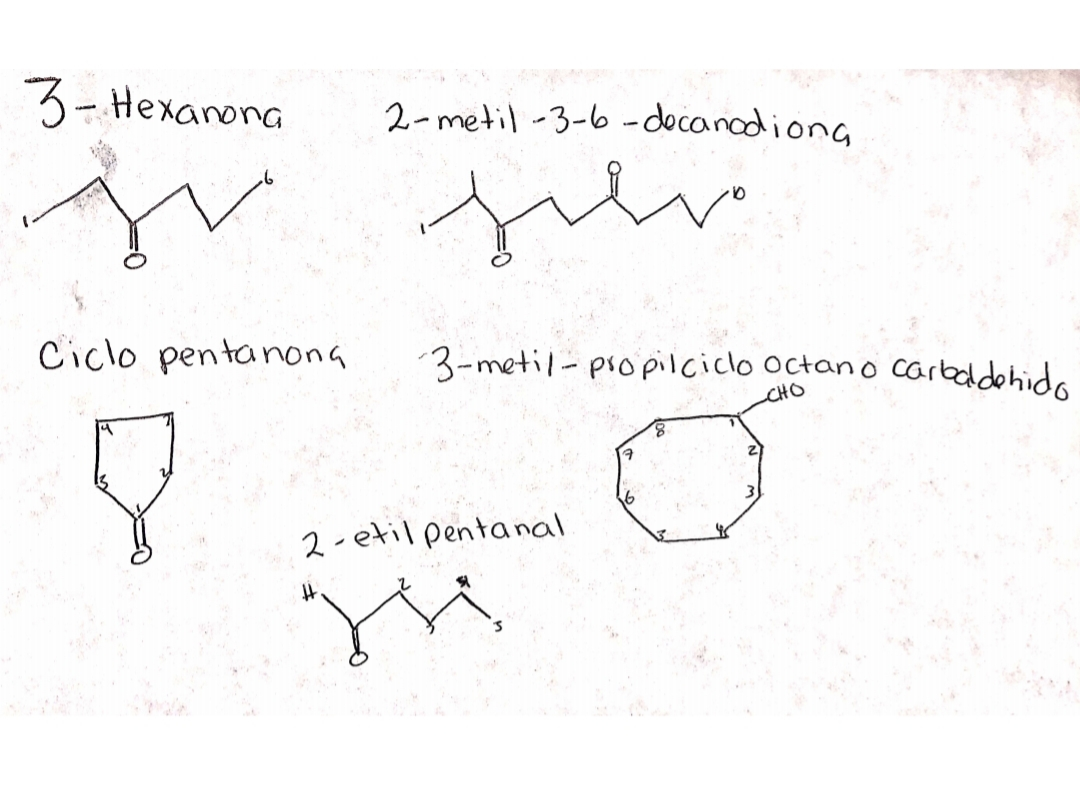 3-Hexanona
2-metil-3-6-decanodiona
1
6
O
O
1
10
O
Ciclo pentanona
3-metil-propilciclo octano carbaldehido
CHO
4
3
5
2
1
O
8
1
7
2
6
3
5
4
2-etil pentanal
H
2
4
3
5
O